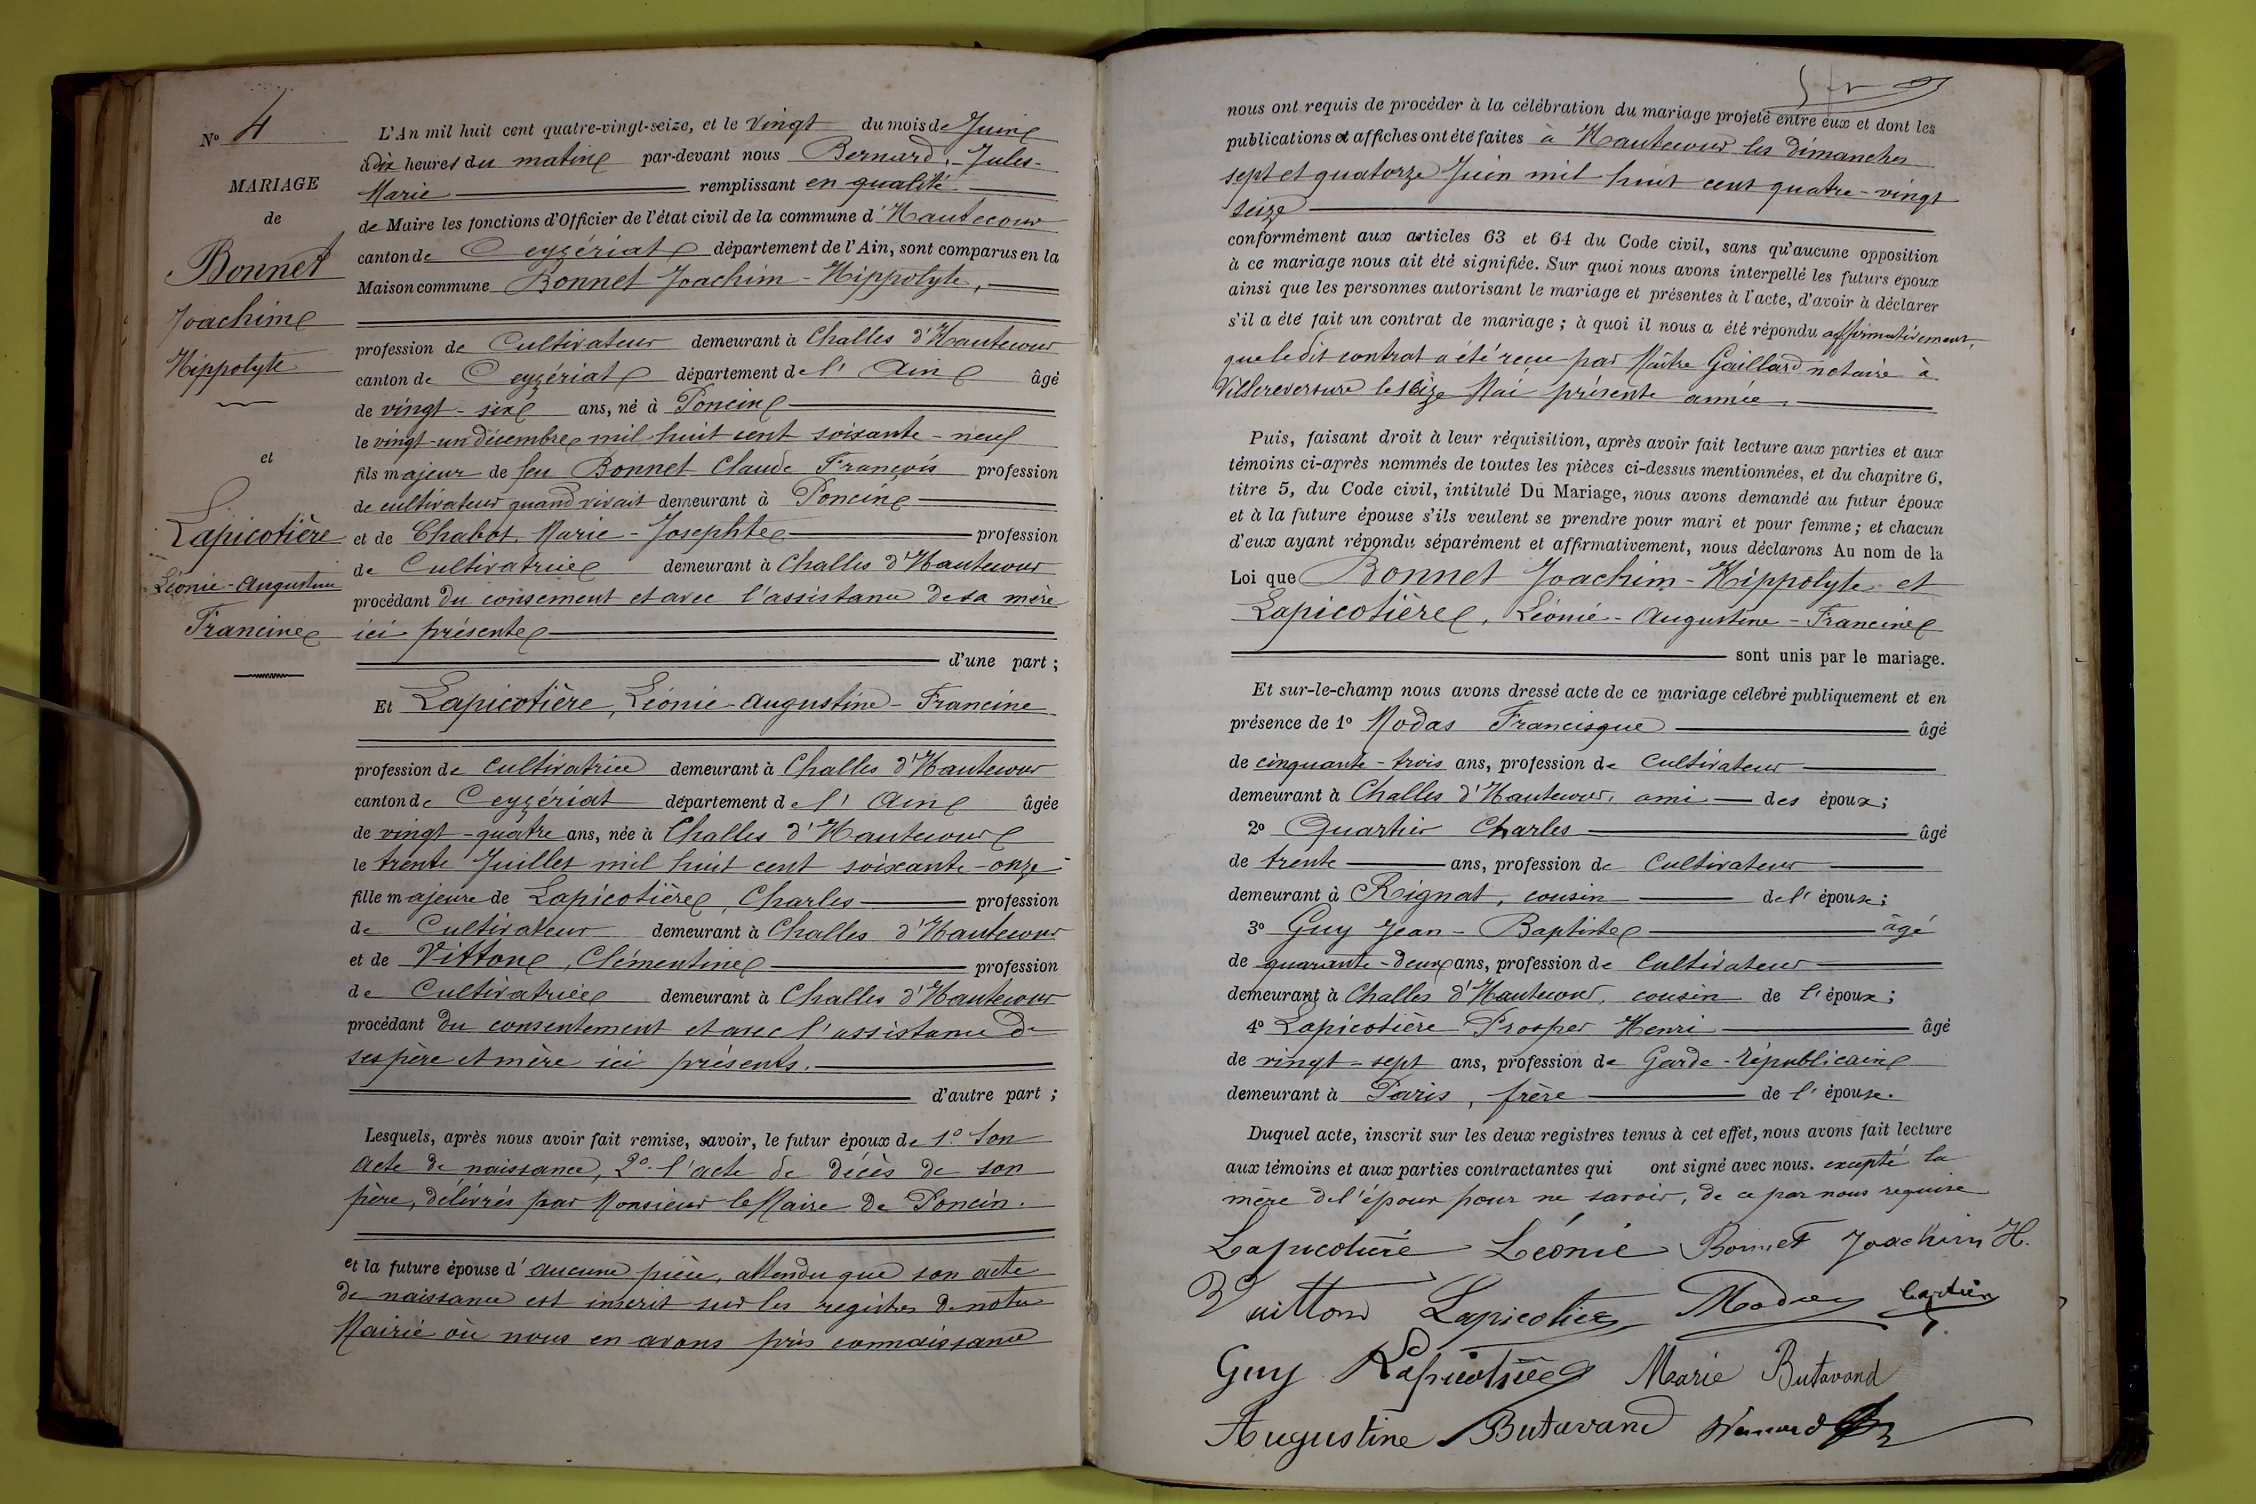 N° 4
MARIAGE
de
Bonnet
Joachim
Hippolyte
et
Lapicotière
Léonie-Augustine
Francine
L'An mil huit cent quatre-vingt-seize, et le vingt du mois de Juin
à dix heures du matin par-devant nous Bernard, Jules-
Marie remplissant en qualité
de Maire les fonctions d'Officier de l'état civil de la commune d'Hautecour
canton de Ceyzériat département de l'Ain, sont comparus en la
Maison commune Bonnet Joachim-Hippolyte,
profession de Cultivateur demeurant à Challes d'Hautecour
canton de Ceyzériat département de l'Ain âgé
de vingt-six ans, né à Poncin
le vingt-un décembre mil huit cent soixante-neuf
fils majeur de feu Bonnet Claude François profession
de cultivateur quand vivait demeurant à Poncin
et de Chabot, Marie-Josephte profession
de Cultivatrice demeurant à Challes d'Hautecour
procédant du consement et avec l'assistance de sa mère
ici présente
d'une part ;
Et Lapicotière, Léonie-Augustine-Francine
profession de cultivatrice demeurant à Challes d'Hautecour
canton de Ceyzériat département de l'Ain âgée
de vingt-quatre ans, née à Challes d'Hautecour
le trente Juillet mil huit cent soixante-onze
fille majeure de Lapicotière, Charles profession
de Cultivateur demeurant à Challes d'Hautecour
et de Vitton, Clémentine profession
de Cultivatrice demeurant à Challes d'Hautecour
procédant du consentement et avec l'assistance de
ses père et mère ici présents.
d'autre part ;
Lesquels, après nous avoir fait remise, savoir, le futur époux de 1° Son
acte de naissance, 2° l'acte de décès de son
père, délivrés par Monsieur le Maire de Poncin.
et la future épouse d'aucune pièce, attendu que son acte
de naissance est inscrit sur les registres de notre
Mairie où nous en avons pris connaissance
nous ont requis de procéder à la célébration du mariage projeté entre eux et dont les
publications et affiches ont été faites à Hautecour les dimanches
sept et quatorze Juin mil huit cent quatre-vingt
seize
conformément aux articles 63 et 64 du Code civil, sans qu'aucune opposition
à ce mariage nous ait été signifiée. Sur quoi nous avons interpellé les futurs époux
ainsi que les personnes autorisant le mariage et présentes à l'acte, d'avoir à déclarer
s'il a été fait un contrat de mariage ; à quoi il nous a été répondu affirmativement,
que le dit contrat a été reçu par Maître Gaillard notaire à
Villereversure le seize Mai présente année.
Puis, faisant droit à leur réquisition, après avoir fait lecture aux parties et aux
témoins ci-après nommés de toutes les pièces ci-dessus mentionnées, et du chapitre 6,
titre 5, du Code civil, intitulé Du Mariage, nous avons demandé au futur époux
et à la future épouse s'ils veulent se prendre pour mari et pour femme ; et chacun
d'eux ayant répondu séparément et affirmativement, nous déclarons Au nom de la
Loi que Bonnet Joachim-Hippolyte et
Lapicotière, Léonie-Augustine-Francine
sont unis par le mariage.
Et sur-le-champ nous avons dressé acte de ce mariage célébré publiquement et en
présence de 1° Modas Francisque âgé
de cinquante-trois ans, profession de Cultivateur
demeurant à Challes d'Hautecour, ami des époux ;
2° Quartier Charles âgé
de trente ans, profession de Cultivateur
demeurant à Rignat, cousin de l'épouse ;
3° Guy Jean-Baptiste âgé
de quarante-deux ans, profession de Cultivateur
demeurant à Challes d'Hautecour, cousin de l'époux ;
4° Lapicotière Prosper Henri âgé
de vingt-sept ans, profession de Garde-républicain
demeurant à Paris, frère de l'épouse.
Duquel acte, inscrit sur les deux registres tenus à cet effet, nous avons fait lecture
aux témoins et aux parties contractantes qui ont signé avec nous. excepté la
mère de l'époux pour ne savoir, de ce par nous requise
Lapicotière Léonie Bonnet Joachim H.
Vuitton Lapicotière
Guy Lapicotière Marie Butavand
Augustine Butavand Bernard